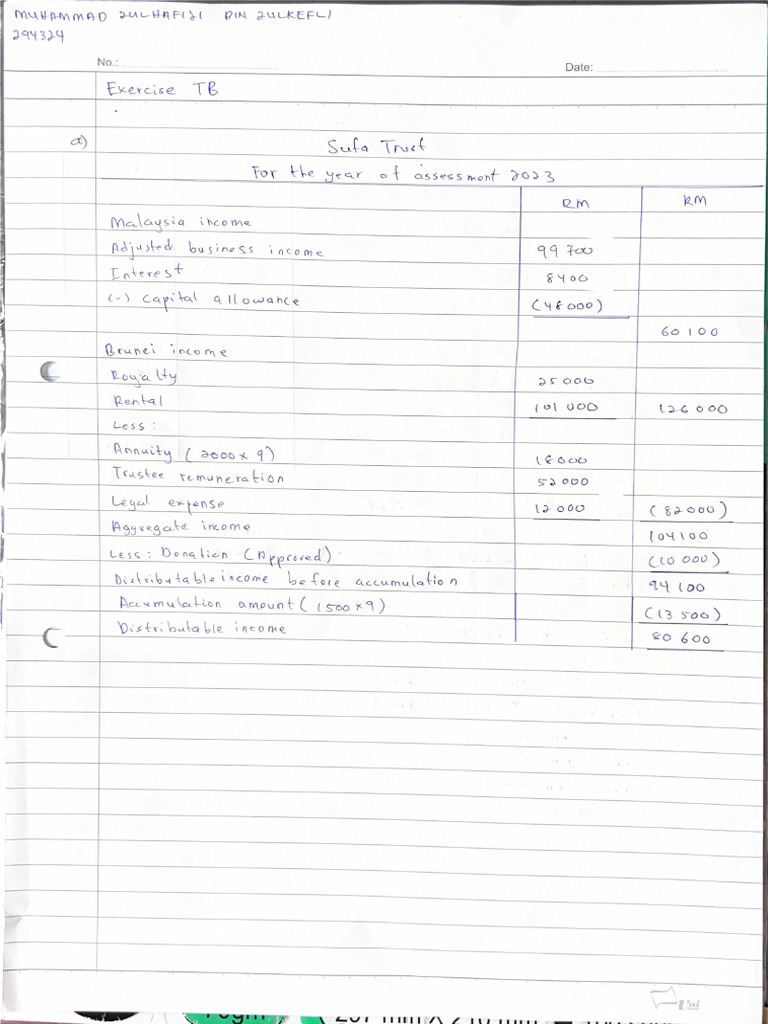 MUHAMMAD ZULHAFIZI BIN ZULKEFLI
294324
No.: Date:
Exercise TB
a)
Sufa Trust
For the year of assessment 2023
RM RM
Malaysia income
Adjusted business income 99 700
Interest 8400
(-) Capital allowance (48 000)
60 100
Brunei income
Royalty 25 000
Rental 101 000 126 000
Less:
Annuity (2000 x 9) 18000
Trustee remuneration 52 000
Legal expense 12 000 (82 000)
Aggregate income 104 100
Less: Donation (Approved) (10 000)
Distributable income before accumulation 94 100
Accumulation amount (1500 x 9) (13 500)
Distributable income 80 600
Uni